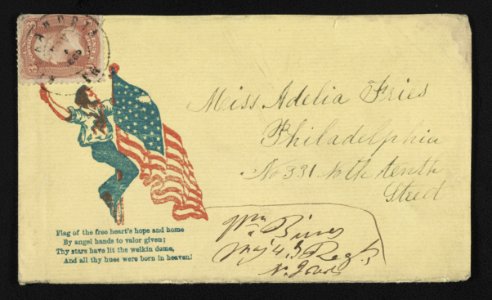 Miss Adelia Fries
Philadelphia
No 331 Nth tenth
Street
Flag of the free heart's hope and home
By angel hands to valor given;
Thy stars have lit the welkin dome,
And all thy hues were born in heaven!
Wm
Maj 4 Regt